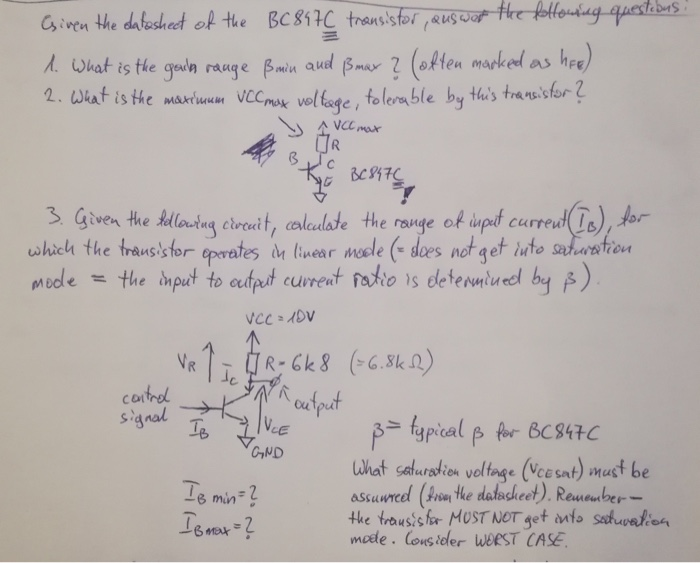 Given the datasheet of the BC847C transistor, answer the following questions:
1. What is the gain range βmin and βmax ? (often marked as hFE)
2. What is the maximum VCCmax voltage, tolerable by this transistor?
VCCmax
R
B C
E BC847C !
3. Given the following circuit, calculate the range of input current (IB), for
which the transistor operates in linear mode (= does not get into saturation
mode = the input to output current ratio is determined by β).
VCC = 10V
VR IC R = 6k8 (= 6.8kΩ)
control
signal
output
IB VCE
GND
β = typical β for BC847C
What saturation voltage (VCEsat) must be
IB min = ? assumed (from the datasheet). Remember –
IB max = ? the transistor MUST NOT get into saturation
mode. Consider WORST CASE.